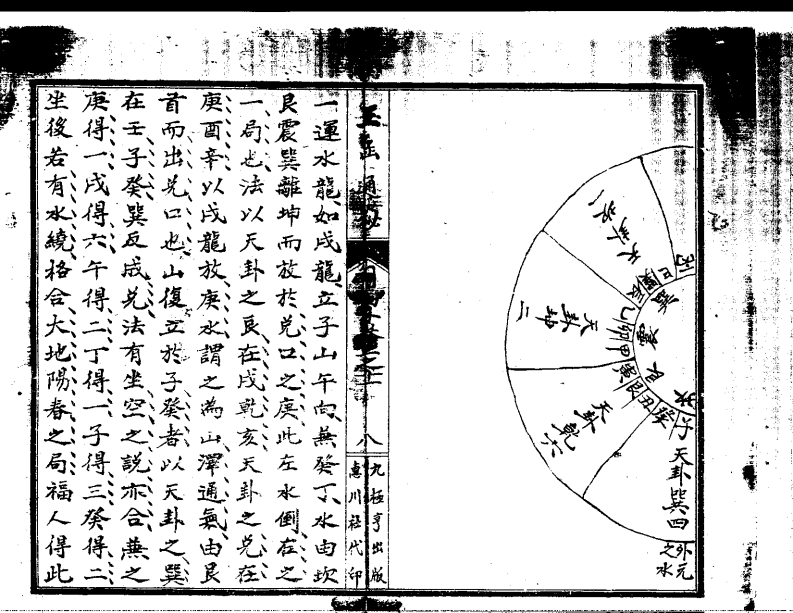 子天卦巽四
外元
之水
癸
丑
艮
寅
甲
卯
乙
辰
巽
巳
震
天卦乾六
天卦坤二
通
八
九極亨出版
惠川社代印
一運水龍如戌龍立子山午向兼癸丁水由坎
艮震巽離坤而放於兌口之庚此左水倒右之
一局也法以天卦之艮在戌乾亥天卦之兌在
庚酉辛以戌龍放庚水謂之為山澤通氣由艮
首而出兌口也山復立於子癸者以天卦之巽
在壬子癸巽反成兌法有坐空之說亦合兼之
庚得一戌得六午得二丁得一子得三癸得二
坐後若有水繞格合大地陽春之局福人得此